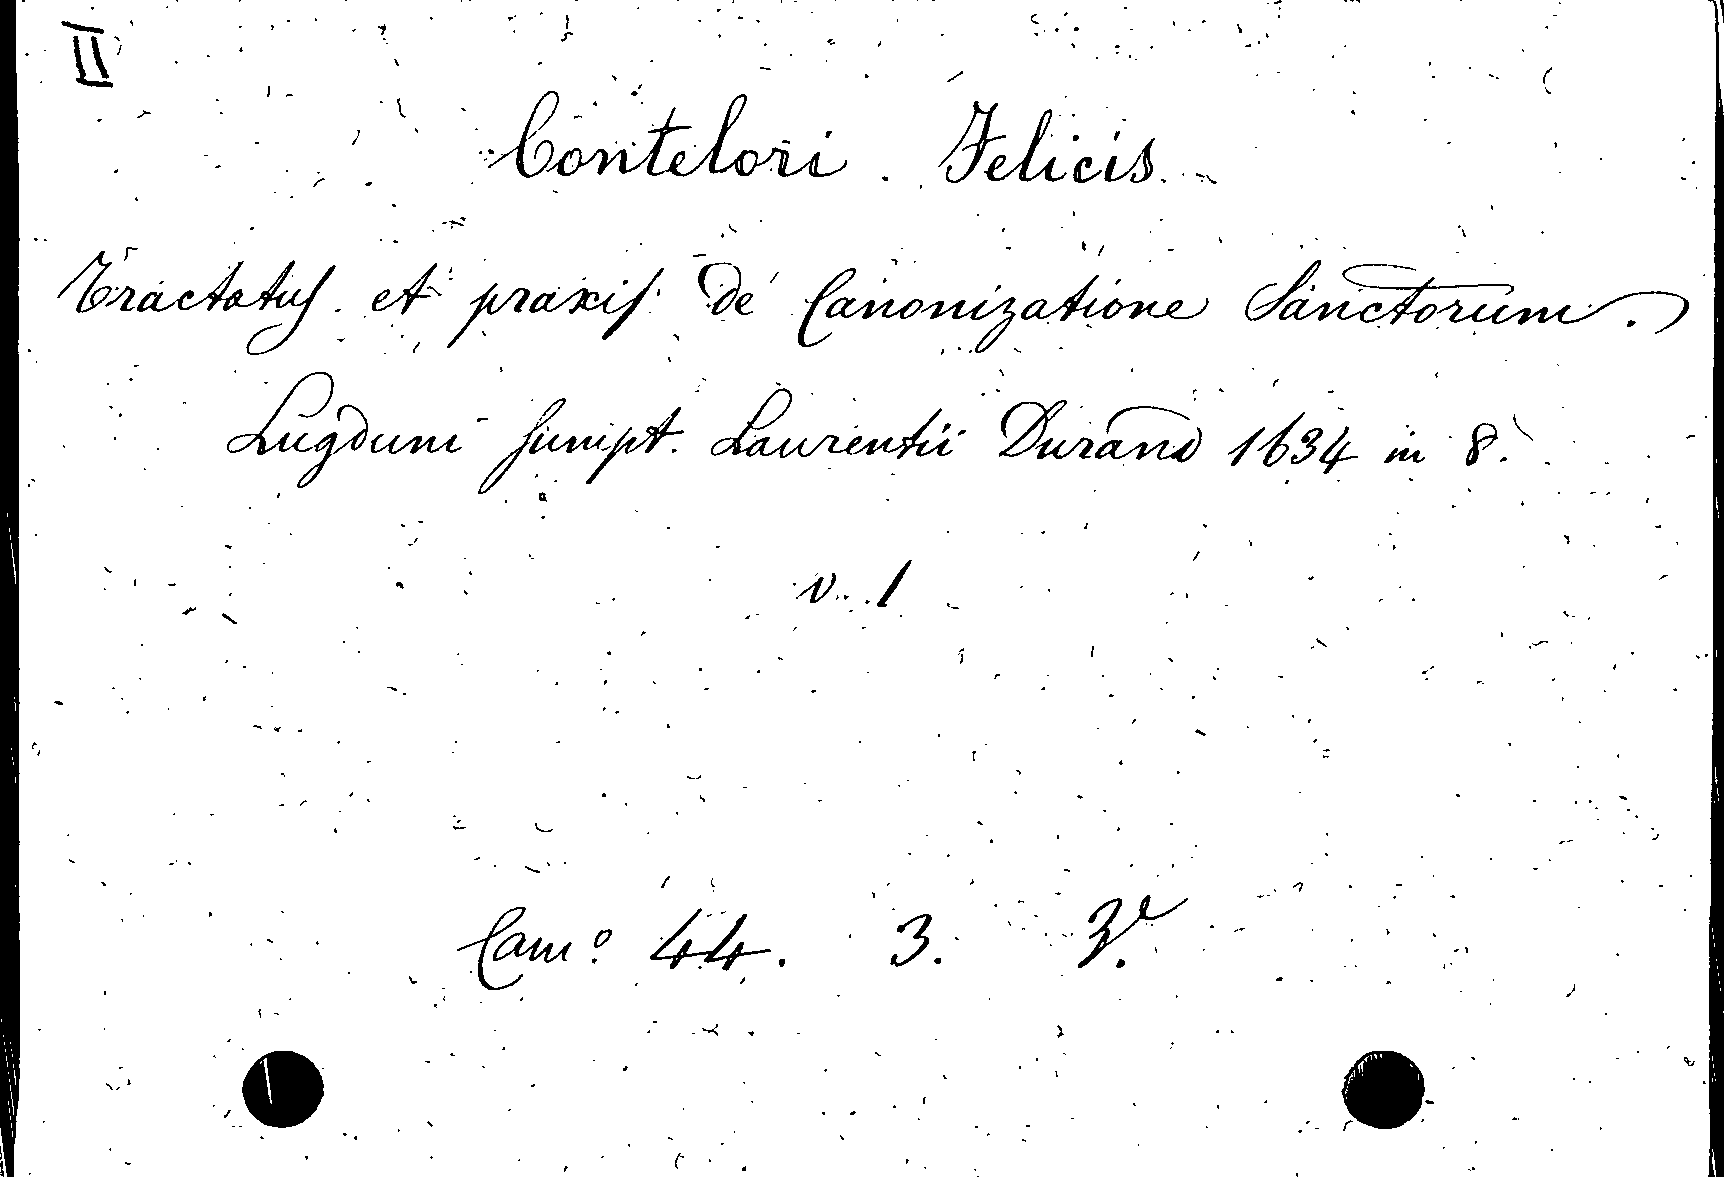 II
Contelori . Felicis.
Tractatus et praxis de Canonizatione Sanctorum.
Lugduni sumpt. Laurentii Durand 1634 in 8.
v. 1
Cam.º 44. 3. 3.e